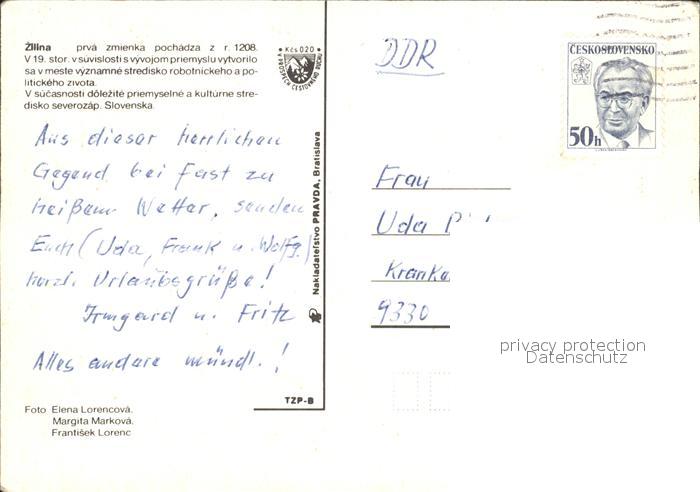 Žilina prvá zmienka pochádza z r. 1208.
V 19. stor. v súvislosti s vývojom priemyslu vytvorilo
sa v meste významné stredisko robotníckeho a po-
litického života.
V súčasnosti dôležité priemyselné a kultúrne stre-
disko severozáp. Slovenska.
Kčs 0,20
V PROSPECH CESTOVNÉHO RUCHU
Aus dieser herrlichen
Gegend bei fast zu
heißem Wetter, senden
Euch (Uda, Frank u. Wolfg.)
herzl. Urlaubsgrüße!
Irmgard u. Fritz
Alles andere mündl.!
Foto Elena Lorencová.
Margita Marková.
František Lorenc
Nakladateľstvo PRAVDA, Bratislava
TZP-B
DDR
ČESKOSLOVENSKO
50h
Frau
Uda
9330
privacy protection
Datenschutz